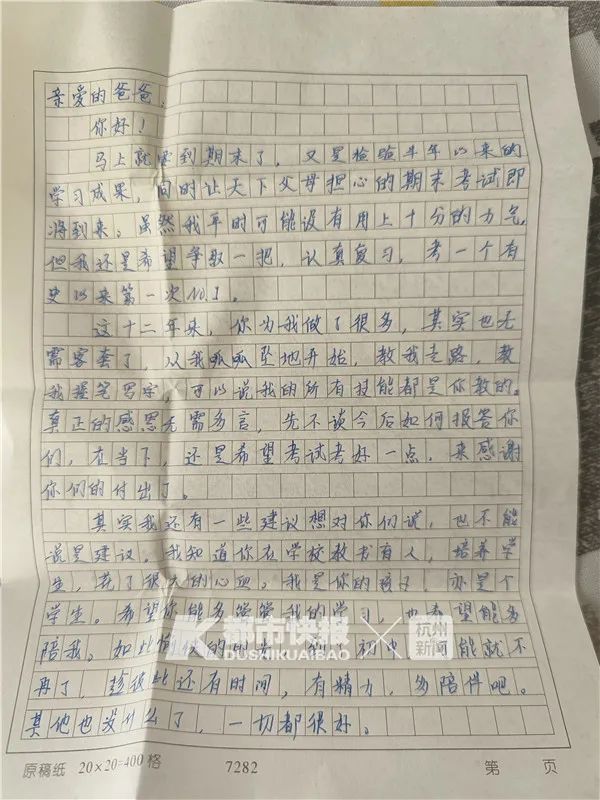 亲爱的爸爸,
你好!
马上就要到期末了,又是检验半年以来的
学习成果,同时让天下父母担心的期末考试即
将到来。虽然我平时可能没有用上十分的力气,
但我还是希望争取一把,认真复习,考一个有
史以来第一次NO.1。
这十二年来,你为我做了很多,其实也无
需客套了,从我呱呱坠地开始,教我走路,教
我握笔写字,可以说我的所有技能都是你教的。
真正的感恩无需多言,先不谈今后如何报答你
们,在当下,还是希望考试考好一点,来感谢
你们的付出了。
其实我还有一些建议想对你们说,也不能
说是建议。我知道你在学校教书育人,培养学
生,花了很大的心血。我是你的孩子,亦是个
学生。希望你能多管管我的学习,也希望能多
陪我。如此 的时 到了初中 能就不
再了,趁彼此还有时间,有精力,多陪伴吧。
其他也没什么了,一切都很好。
都市快报
DUSHIKUAIBAO
杭州
新闻
原稿纸 20×20=400格 7282 第 页